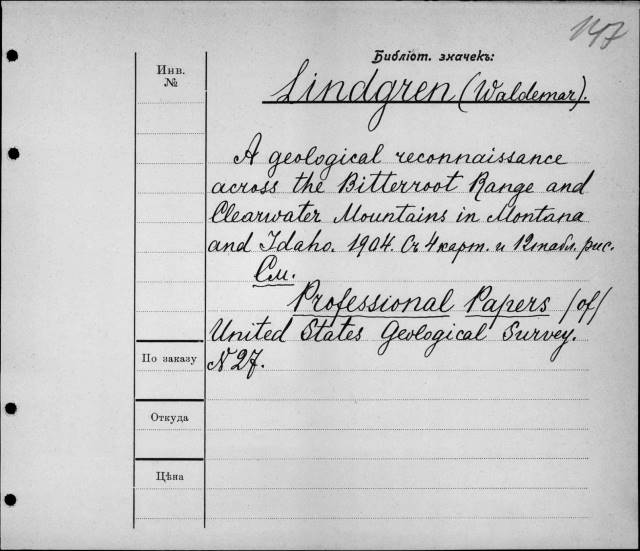 147
Библіот. значекъ:
Инв.
№
Lindgren (Waldemar).
A geological reconnaissance
across the Bitterroot Range and
Clearwater Mountains in Montana
and Idaho. 1904. Съ 4 карт. и 12 табл. рис.
См.
Professional Papers /of/
United States Geological Survey.
N 27.
По заказу
Откуда
Цѣна